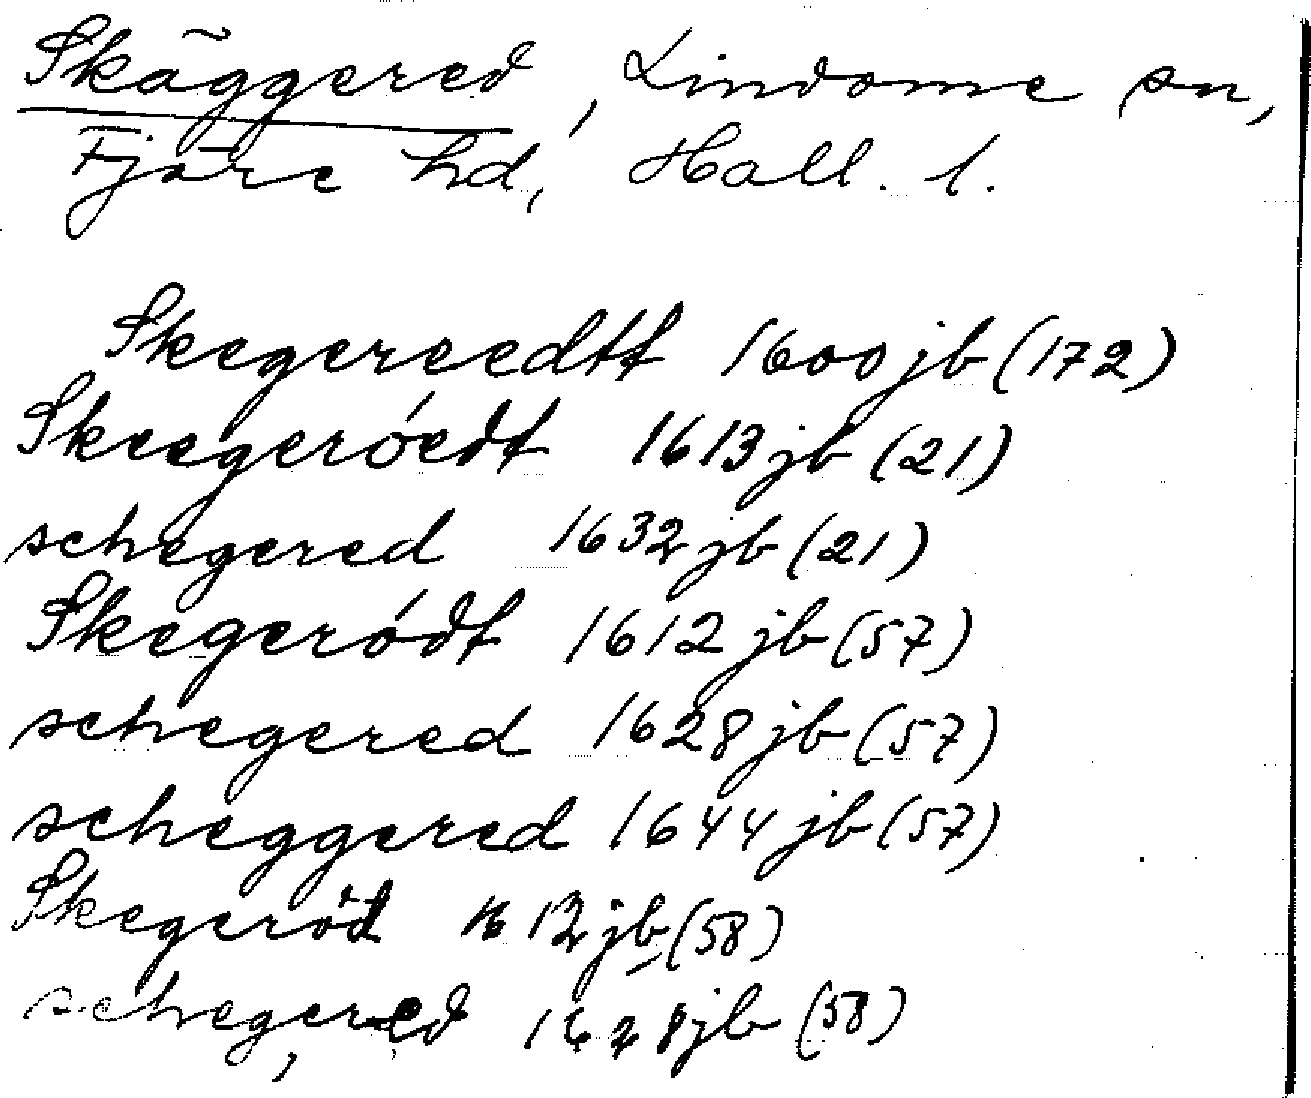 Skäggered, Lindome sn,
Fjäre hd, Hall. l.
Skegereedtt 1600 jb (172)
Skeegeróedt 1613 jb (21)
schegered 1632 jb (21)
Skegeródt 1612 jb (57)
schegered 1628 jb (57)
scheggered 1644 jb (57)
Skegeröd 1612 jb (58)
schegered 1628 jb (58)